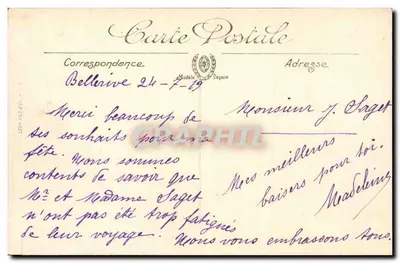 Carte Postale
Correspondance
Adresse
Modèle Déposé
Bellerive 24-7-19
Merci beaucoup de
tes souhaits pour ma
fête. Nous sommes
contents de savoir que
Mr et Madame Saget
n'ont pas été trop fatigués
de leur voyage. Nous vous embrassons tous.
Monsieur J. Saget
Mes meilleurs
baisers pour toi.
Madeleine
CARTORAPHILIA